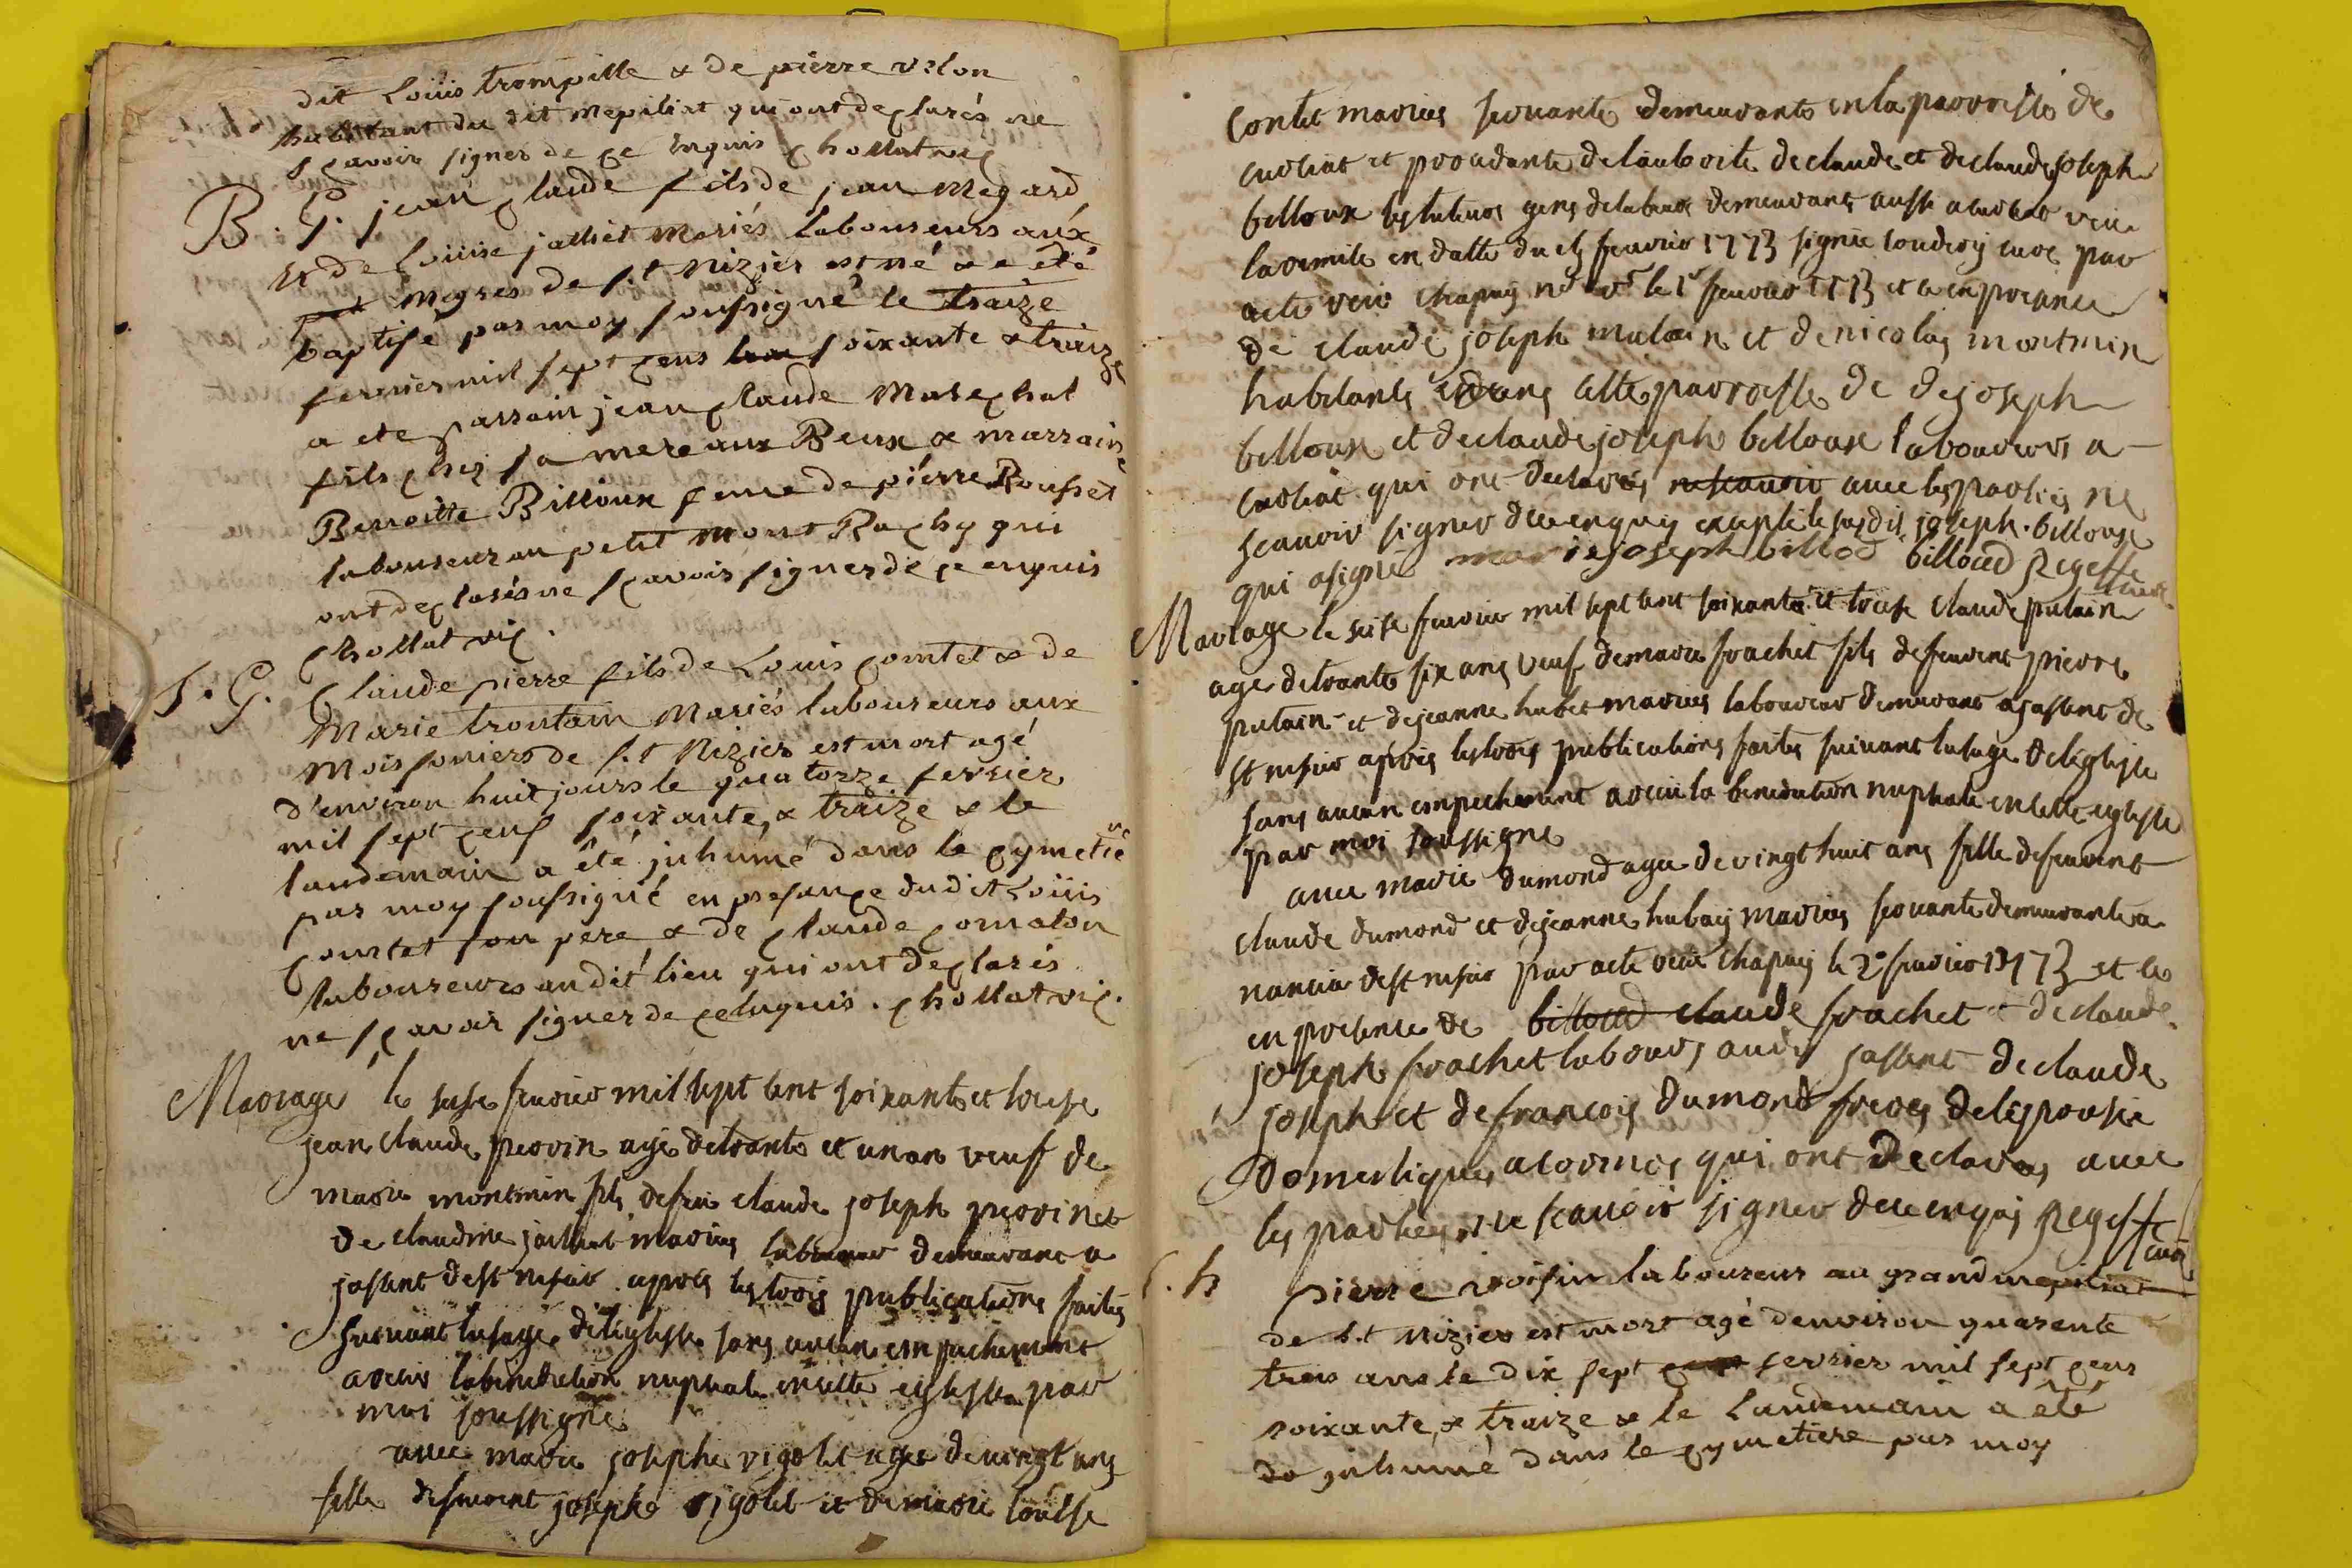 dit Loüis trompille & de pierre velon
habitant du dit mepiliat qui ont declarés ne
scavoir signer de ce enquis chollat vic
B. G. jean claude fils de jean Megard
et de Loüise jolliet Mariés laboureurs aux
Megres de s.t Nizier est né & a été
baptisé par moy soussigné le traize
fevrier mil sept cens soixante & traize
a eté parrain jean claude Marechal
fils chez sa mere aux Beux & marraine
Benoitte Billoux feme de piérre Rousset
laboureur au petit Mont Rachy qui
ont declarés ne scavoir signer de ce enquis
chollat vic.
S. G. Claude pierre fils de Louis comtet & de
Marie trontain Mariés laboureurs aux
Moissoniers de s.t Nizier est mort agé
d'environ huit jours le quatorze fevrier
mil sept cens soixante, & traize & le
landemain a été juhumé dans le cymetiere
par moy soussigné en presance du dit Loüis
comtet son pere & de claude comaton
laboureurs au dit lieu qui ont declarés
ne scavoir signer de ce enquis. chollat vic.
Mariage le seise fevrier mil sept cent soixante et treise
jean claude perrin agé de trante et un an veuf de
marie montmin fils de feu claude joseph perrin et
de claudine jolliet mariés laboureur demeurant a
jassent de st nisier apres les trois publications faites
suivant lusage de léglisse sans aucun empechement
a recus la benediction nuptiale en cette eglisse par
moi soussigné
avec marie josephe rigolet agée de vingt ans
fille de feuent joseph rigolet et de marie louisse
contet mariés servante demeurante en la parroisse de
curciat et procedante de lautorite de claude et de claude joseph
billoux ses tuteurs gens de labeur demeurant aussi a curciat veu
la remise en datte du fevrier 1773 signée coudery curé par
acte reçu chapuy n.re le 1.r fevrier 1773 et en presence
de claude joseph mulain et de nicolas montmin
habitants dans cette parroisse de joseph
billoux et de claude joseph billoux laboureurs a
curciat qui ont declarés ne scavoir avec les parties ne
scavoir signer de ce enquis excepté le susdit joseph billoux
qui a signé marie joseph billod billoud Regeffe
curé
Mariage le seise fevrier mil sept cent soixante et treise claude putain
agé de trante six ans veuf de marie frachet fils de feuent pierre
putain et de jeanne hubet mariés laboureur demeurant a jassent de
st nisier apres les trois publications faites suivant lusage de léglisse
sans aucun empechement a recu la benediction nuptiale en cette eglisse
par moi soussigné
avec marie dumond agée de vingt huit ans fille de feuent
claude dumond et de jeanne hubay mariés servante demeurante a
nancia de st nisier par acte reçu chapuy le 2.e fevrier 1773 et le
en presence de billoud claude frachet et de claude
joseph frachet labours audit jassent de claude
joseph et de francois dumond freres de lépousée
domestiques a cormos qui ont déclarés avec
les parties ne scavoir signer de ce enquis Regeffe
curé
S. h pierre voisin laboureur au grand mepiliat
de s.t Nizier est mort agé denviron quarente
trois ans le dix sept fevrier mil sept cens
soixante, & traize & le landemain a été
do juhumé dans le cymetiere par moy